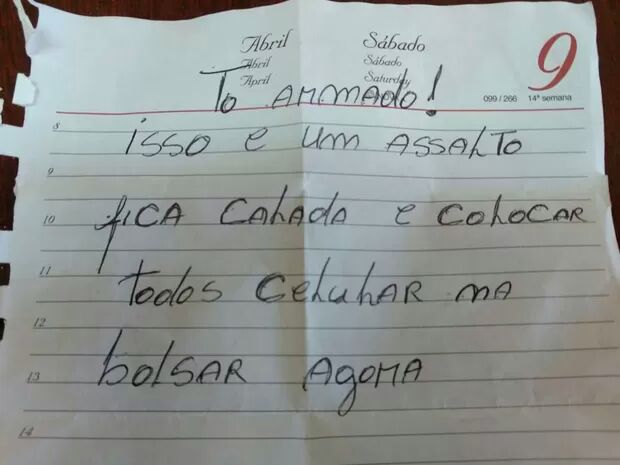 Abril Sábado 9
Abril Sábado
April Saturday
To ARMADO!
099 / 266 14ª semana
8
isso e um ASSALTO
9
10 fiCA CALADA e COLOCAR
11
TodoS CeLuLAR NA
12
13 bolSAR AgoRA
14